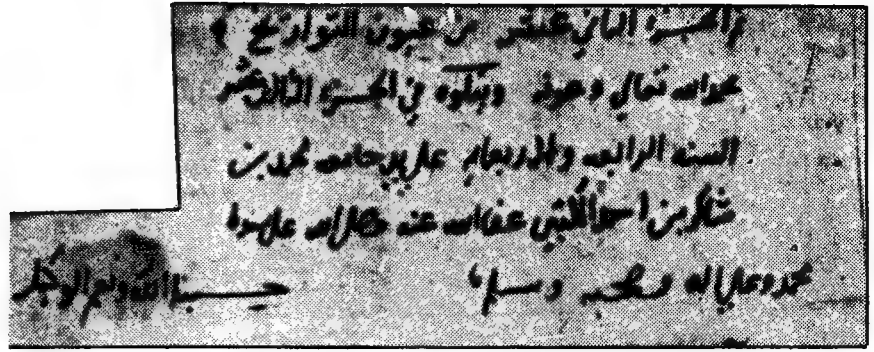 تم الجزء الثاني عشر من عيون التواريخ
بحمد الله تعالى وعونه ويتلوه في الجزء الثالث عشر
السنة الرابعة والأربعماية على يد جامعه محمد بن
شاكر بن احمد الكتبي عفا الله عنه وصلى الله على سيدنا
محمد وعلى اله وصحبه وسلم حسبنا الله ونعم الوكيل